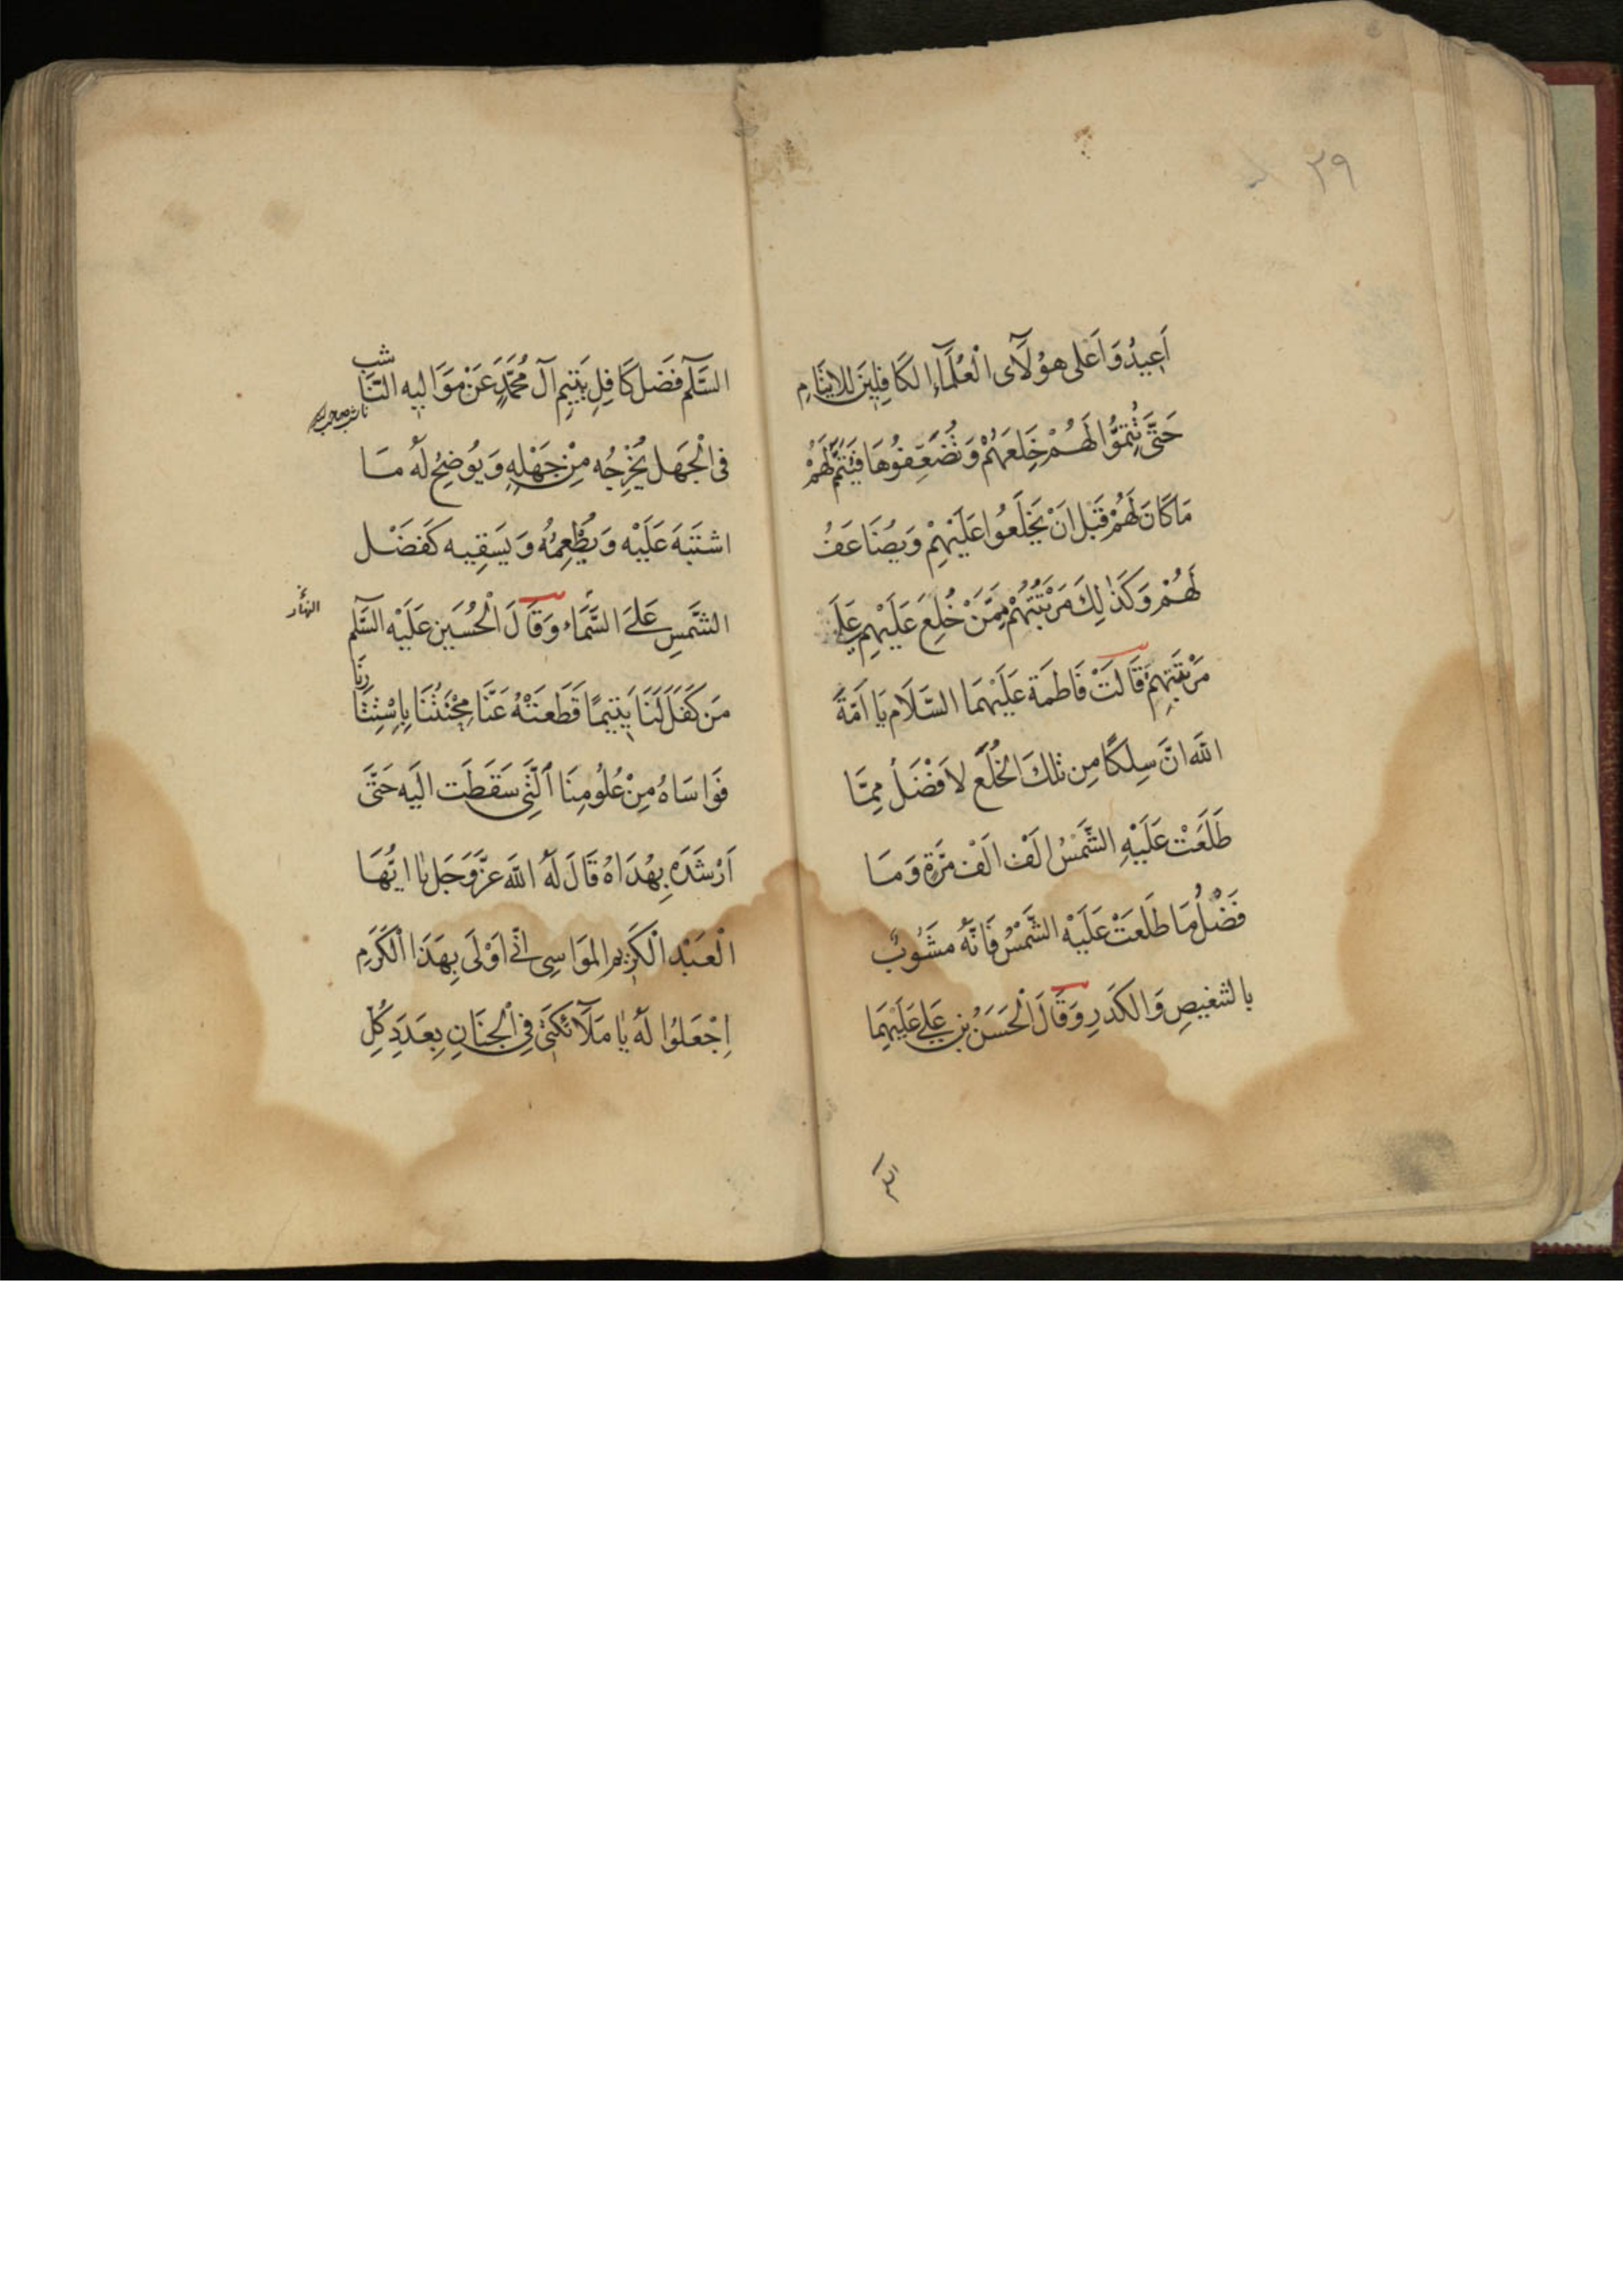 ٢٩
أَعِيدُوَاعَلى هؤُلَآى الْعُلَمَآءِ الكَافِلِينَ لِلايتَامِ
حَتّى تُتِمّوُا لَهُمْ خِلَعَهُمْ وَتُضَعِّفوُهَا فَيَتِمُّ لَهُمْ
مَا كَانَ لَهُمْ قَبْلَ انْ يَخْلَعُوا عَلَيْهِمْ وَيُضَاعَفُ
لَهُمْ وَكَذٰلِكَ مَرْتَبَتُهُمْ مِمَّنْ خُلِعَ عَلَيْهِم عَلَى
مَرْتَبَتِهِمْ قَالَتْ فَاطمَة عَلَيْهمَا السَّلَام يَا اَمَةَ
اللّه انَّ سِلكًا مِن تلكَ الخُلَع لاَفْضَلُ مِمَّا
طَلَعَتْ عَلَيْهِ الشَّمْسُ الَف الَف مَرّةٍ وَمَا
فَضْلُ مَا طَلَعَتْ عَلَيْه الشَّمْسُ فَانَّهُ مشَوُبٌ
بالتنغيصِ وَالكَدَرِ وَقَالَ الْحَسَنُ بن عَلى عَلَيْهِمَا
السَّلٰم فَضل كَافِلِ يَتيِمِ آل مُحَمَّدٍ عَنْ مَوَاليِه النَّا
شب
فى الْجَهل يُخْرِجُه مِنْ جَهْلِهِ وَيُوضِحُ لَهُ مَا
اشتَبَهَ عَلَيْه وَيُطْعِمُهُ وَيَسَقِيه كَفَضْل
الشَّمسِ عَلىَ السَّمَاء وَقَالَ الْحُسَين عَلَيْه السَّلٰم
مَن كَفَلَ لَنَا يَتيمًا قَطَعَتْهُ عَنَّا مِحْنَتُنَا بِاسْتِتَا
رنَا
فَوَاسَاهُ مِنْ عُلُومِنَا الَّتى سَقَطَت الَيه حَتَّى
اَرْشَدَه بِهُدَاهُ قَالَ لَهُ اللّهَ عَزَّوَجَل يَا ايُّهَا
الْعَبْد الْكَرِيم المَوَاسِى انّى اَوْلَى بِهَذَا الْكَرَمِ
اِجْعَلوُا لَهُ يَا مَلَآئكَتى فِى الْجنَانِ بِعَدَدِ كُلِّ